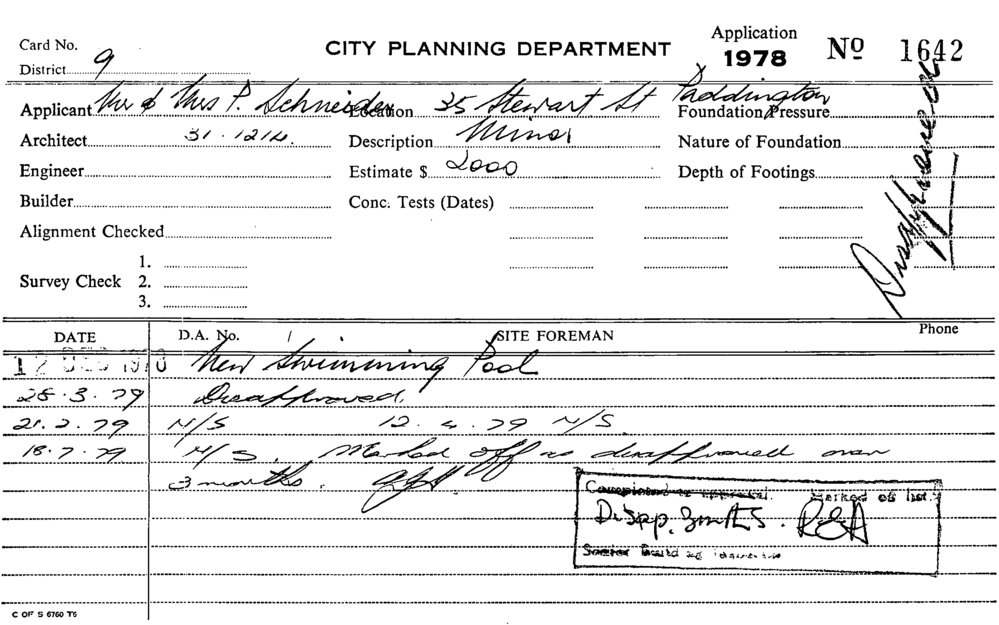 Card No. 9 CITY PLANNING DEPARTMENT Application 1978 No 1642
District
Applicant Mr & Mrs P. Schneider Location 35 Stewart St Paddington Foundation Pressure
Architect 31.1214. Description Minor Nature of Foundation
Engineer Estimate $ 2000 Depth of Footings
Builder Conc. Tests (Dates)
Alignment Checked
Disapproved
Survey Check 1.
2.
3.
DATE D.A. No. SITE FOREMAN Phone
12 DEC 1978 New Swimming Pool
28.3.79 Disapproved.
21.2.79 N/S 12.4.79 N/S.
18.7.79 N/S. Marked off as disapproved over
3 months.
Completed as approval. Marked off list.
Disapp. 3mths. R&A
Senior Building
C OF S 6760 T6